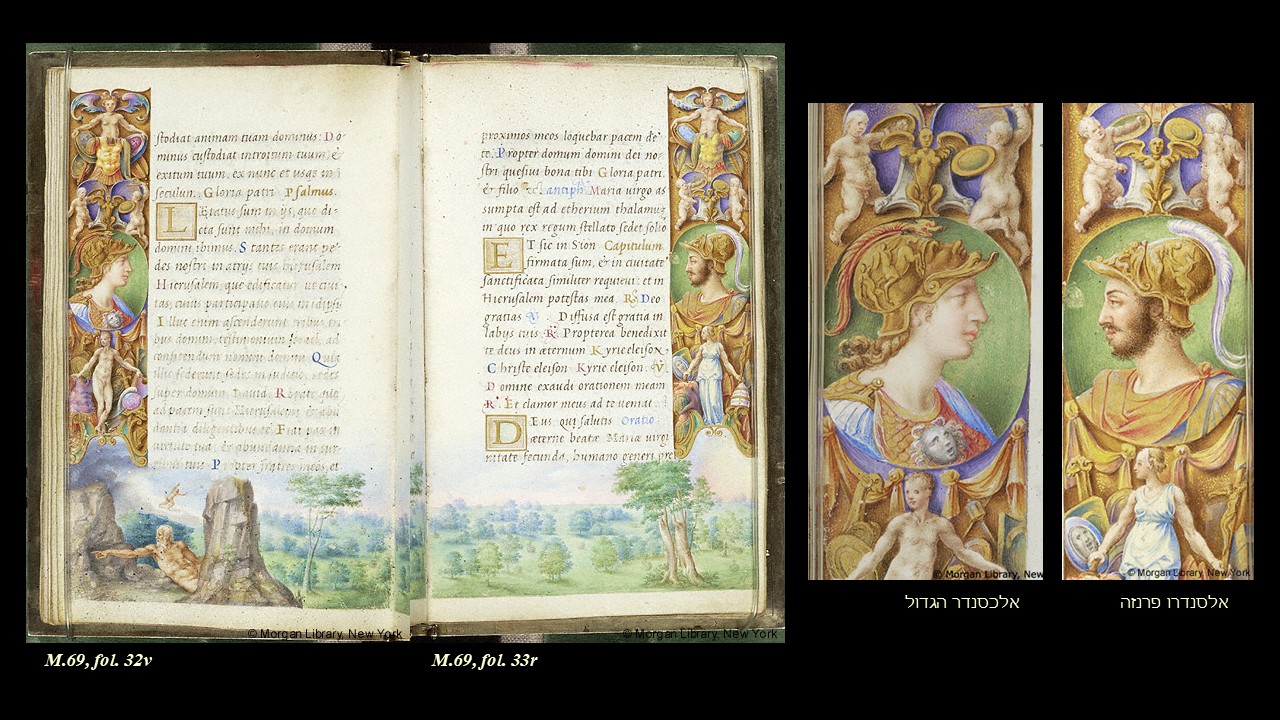 stodiat animam tuam dominus: Do
minus custodiat introitum tuum, &
exitum tuum, ex nunc et usqs in
seculum. Gloria patri Psalmus.
Lætatus sum in ijs, quæ di-
cta sunt mihi, in domum
domini ibimus. Stantes erant pe-
des nostri in atrijs tuis hierusalem
Hierusalem, quæ edificatur ut civi
tas; cuius participatio eius in idipsu
Illuc enim ascenderunt tribus, tri
bus domini, testimonium Israel, ad
confitendum nomini domini Quia
illic sederunt sedes in judicio, sedes
super domum David Rogate quæ
ad pacem sunt Hierusalem & abū
dantia diligentibus te Fiat pax in
virtute tua & abundantia in tur-
ribus tuis Propter fratres meos, et
proximos meos loquebar pacem de
te. Propter domum domini dei no-
stri quesivi bona tibi Gloria patri,
& filio antiph Maria virgo as
sumpta est ad etherium thalamuz
in quo rex regum stellato sedet solio
ET sic in Sion Capitulum.
firmata sum, & in civitate
sanctificata similiter requieui: et in
Hierusalem potestas mea R Deo
gratias V. Diffusa est gratia in
labijs tuis R Propterea benedixit
te deus in æternum Kyrie eleison
Christe eleison Kyrie eleison. V.
Domine exaudi orationem meam
R. Et clamor meus ad te veniat
Deus qui salutis Oratio.
æterne beatæ Mariæ virgi
nitate fecunda, humano generi pre
© Morgan Library, New York
© Morgan Library, New York
M.69, fol. 32v
M.69, fol. 33r
© Morgan Library, New
© Morgan Library, New York
אלכסנדר הגדול
אלסנדרו פרנזה